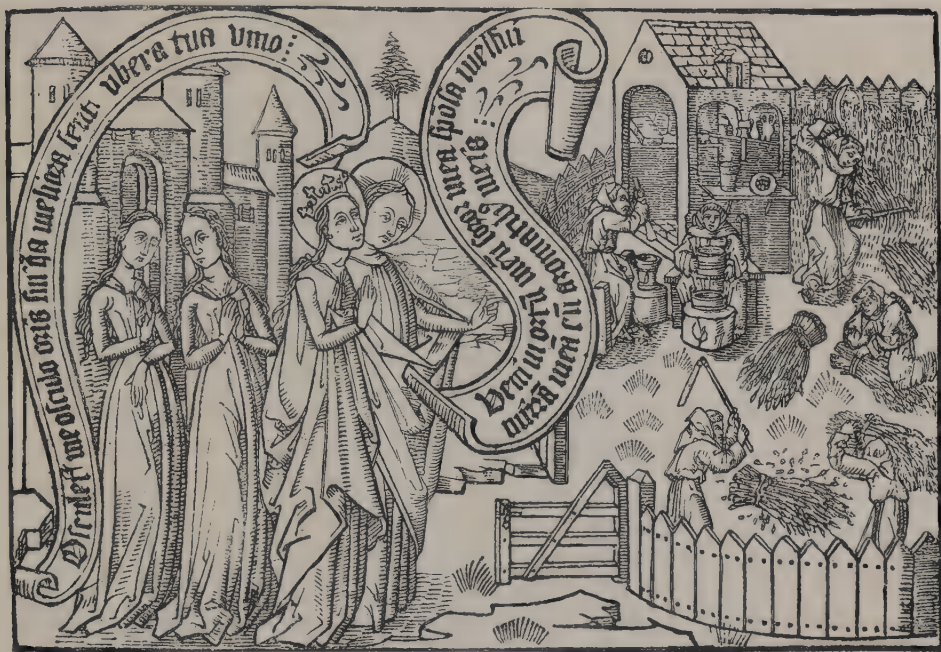 Osculet᷑ me osculo oris sui q̄a meliora sūt vbera tua vino :
Veni in ortū meū soror mea spōsa messui
mirrā meā cū aromatibꝰ meis :